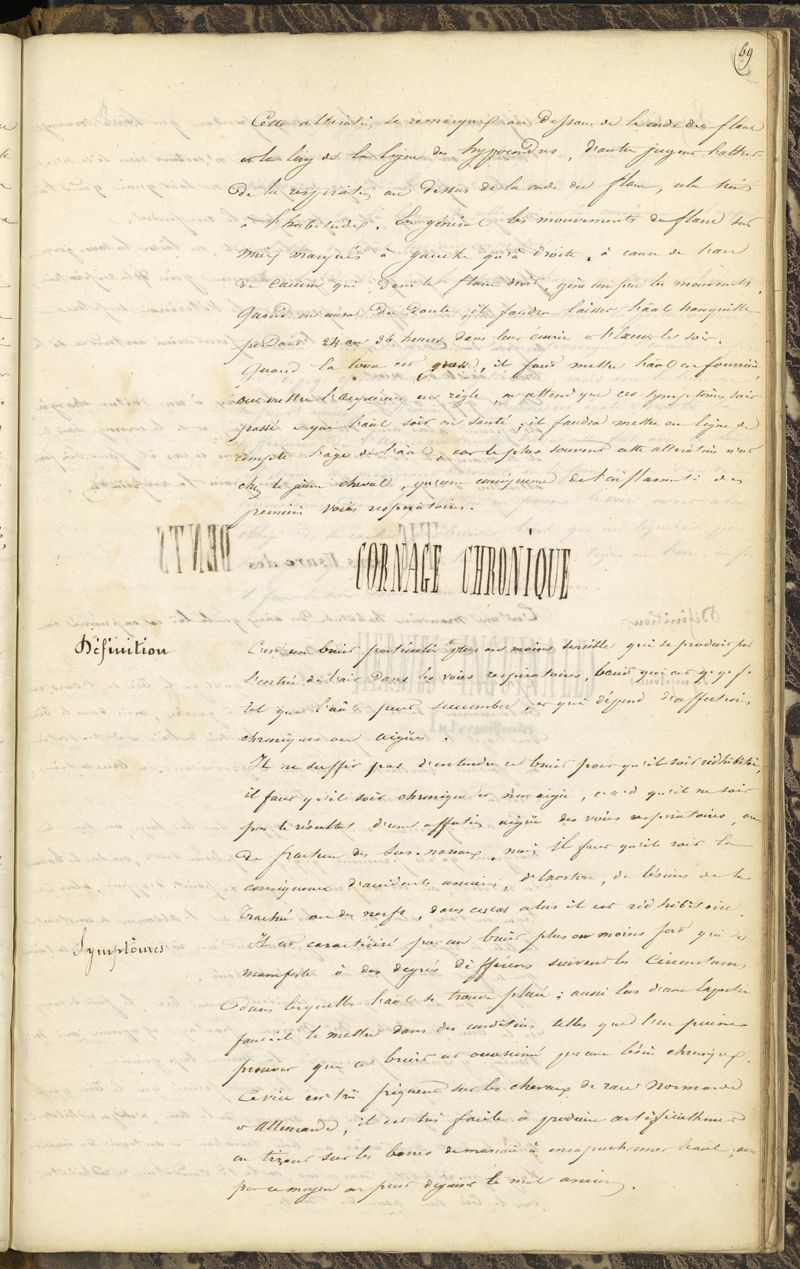 69
Cette altération se remarque au dessous de la corde du flanc
et le long de la ligne des hyppocondres, d'autres jugent l'altér.
De la respiration au dessus de la corde du flanc, cela tient
à l'habitude. En général les mouvements du flanc sont
mieux marqués à gauche qu'à droite, à cause de
du caecum qui dans le flanc droit, gêne un peu les mouvements.
Quand on aura du doute, il faudra laisser l'aal tranquille
pendant 24 ou 36 heures dans leur écurie et le soir.
Quand la toux est grasse, il faut mettre l'aal en fourrière
ou mettre l'acquéreur en règle, on attend que ces symptômes soit
passé et que l'aal soit en santé; il faudra mettre en ligne de
compte l'âge de l'aal, car le plus souvent cette altération n'est
chez le jeune cheval, qu'une conséquence de l'inflammati des
premières voies respiratoires.
CORNAGE CHRONIQUE
Définition
C'est un bruit particulier plus ou moins sensible qui se produit par
l'entrée de l'air dans les voies respiratoires, bruit qui est q.q.f.
tel que l'aal peut succomber, et qui dépend d'affections
chroniques ou aigües.
Il ne suffit pas d'entendre ce bruit pour qu'il soit rédhibitoire,
il faut qu'il soit chronique et non aigüe, c.a.d qu'il ne soit
pas le résultat d'une affection aigüe des voies respiratoires, ou
De fracture des sus-naseaux, mais il faut qu'il soit la
conséquence d'accidents anciens, de lésions de la
trachée ou des nerfs, dans ces cas alors il est rédhibitoire.
Symptômes
Il est caractérisé par un bruit plus ou moins fort qui se
manifeste à des degrés différens suivant les circonstances
Dans lesquelles l'aal se trouve placé; aussi lors d'une expertise
faut-il le mettre dans des conditions telles que l'on puisse
prouver que ce bruit est occasioné par une lésion chronique.
Ce vice est très fréquent sur les chevaux de race Normande
et Allemande, il est très facile à produire artificiellement
en tirant sur les barres de manière à encapuchonner l'aal, aussi
par ce moyen on peut déguiser le mal ancien.